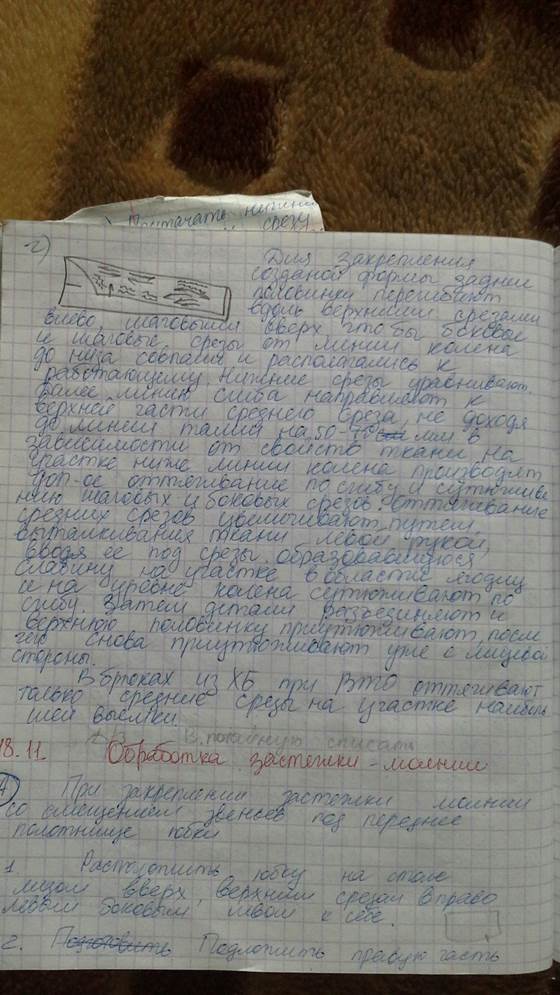 Притачать нижний
срезу
г)
Для закрепления
созданой формы задние
половинки перегибают
вдоль верхними срезами
влево, шаговыми вверх что бы боковые
и шаговые срезы от линии колена
до низа совпали и располагались к
работающему. Нижние срезы уравнивают.
Далее линию сгиба направляют к
верхней части среднего среза, не доходя
до линии талии на 50-70 мм в
зависимости от свойств ткани. На
участке ниже линии колена производят
доп-ое оттягивание по сгибу и сутюжива
нию шаговых и боковых срезов. Оттягивание
средних срезов
выталкивания ткани левой рукой,
вводя ее под срезы. Образовавшуюся
слабину на участке в области ягодиц
и на уровне колена сутюживают по
сгибу. Затем детали разъединяют и
верхнюю половинку приутюживают, после
чего снова приутюживают уже с лицевой
стороны.
В брюках из ХБ при ВТО оттягивают
только средние срезы на участке наиболь
шей выемки.
списать
18.11. Обработка застежки-молнии
При закреплении застежки молнии
со смещением звеньев под переднее
полотнище юбки
1. Расположить юбку на столе
лицом вверх, верхним срезом вправо
левым боковым к себе.
2. Подготовить Подложить правую часть